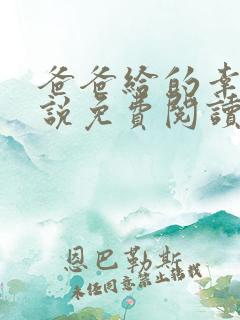 爸爸給的幸
説免費閱讀
恩巴勒斯
未经同意禁止转载